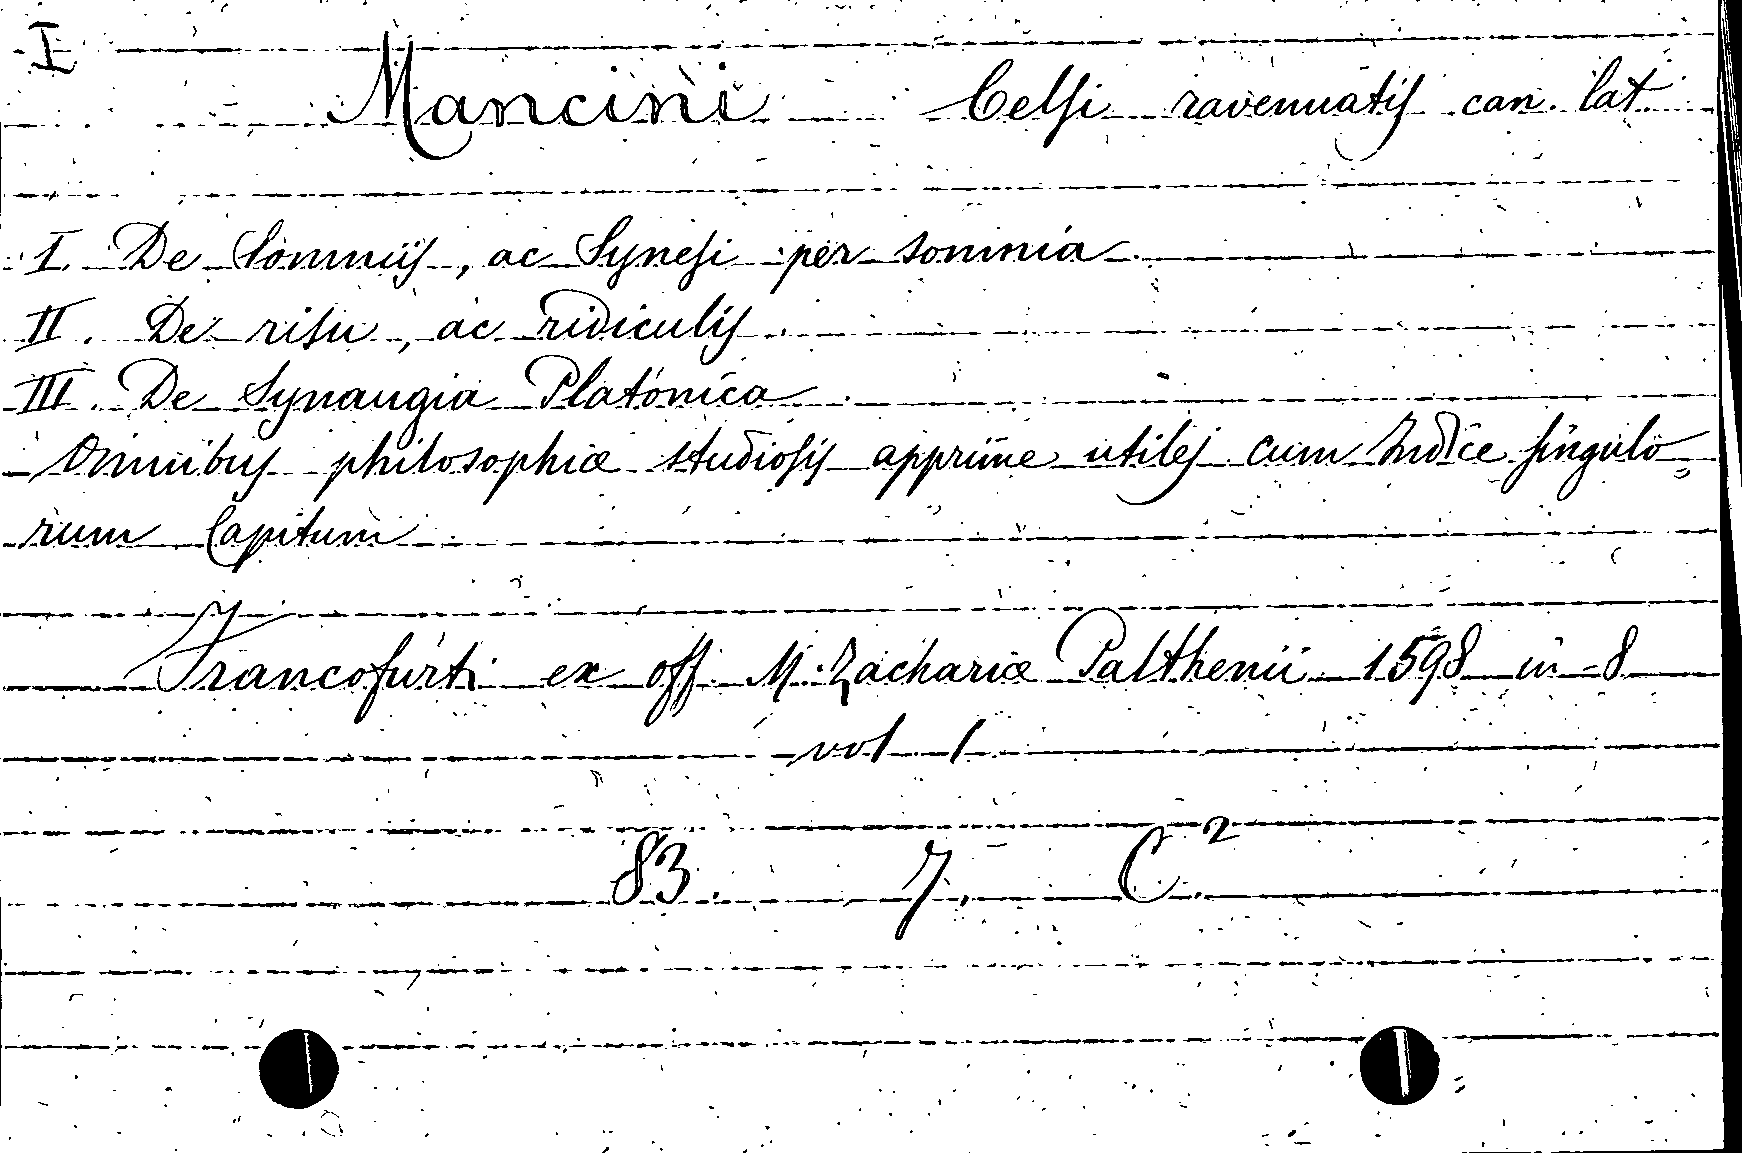 I
Mancini Celsi ravennatis can. lat.
I. De Somniis, ac Synesi per somnia
II. De risu, ac ridiculis
III. De Synaugia Platonica
Omnibus philosophiæ studiosis apprime utiles cum Indice singulo=
rum Capitum
Francofurti ex off. M. Zachariæ Palthenii 1598 in-8
vol 1
83. 7. C.²